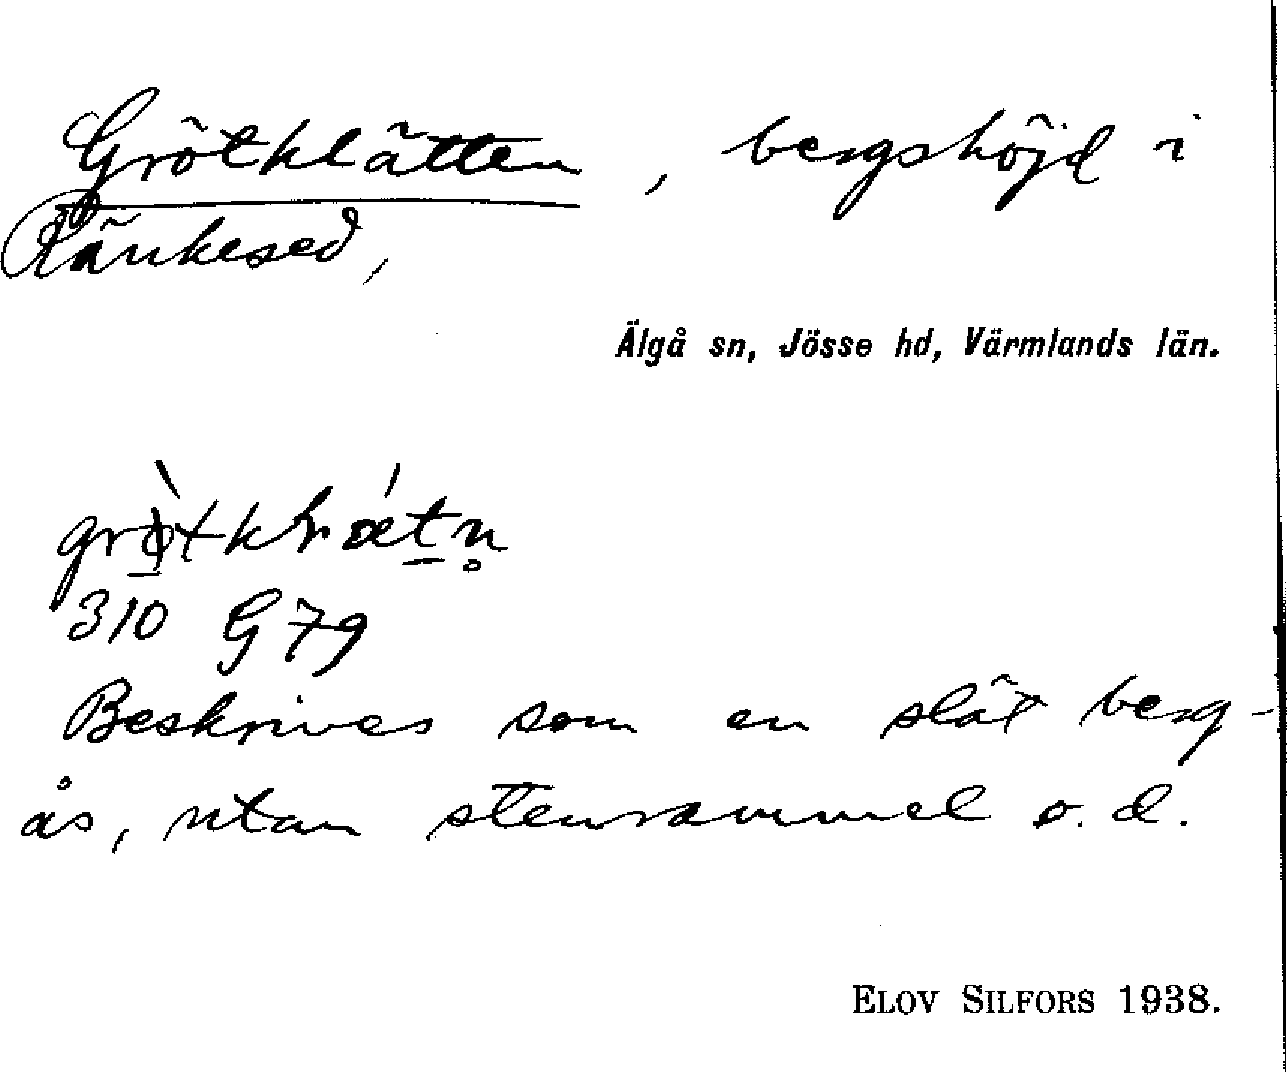 Grötklätten, bergshöjd i
Ränkesed,
Älgå sn, Jösse hd, Värmlands län.
310 G 79
Beskrives som en slät berg-
ås, utan stensrammel o.d.
ELOV SILFORS 1938.